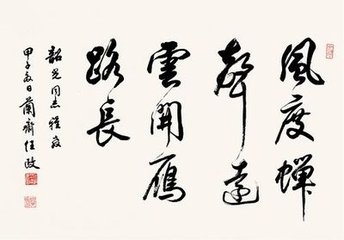 風度蟬
聲遠
雲開雁
路長
韶光同志雅教
甲子冬日蘭齋任政